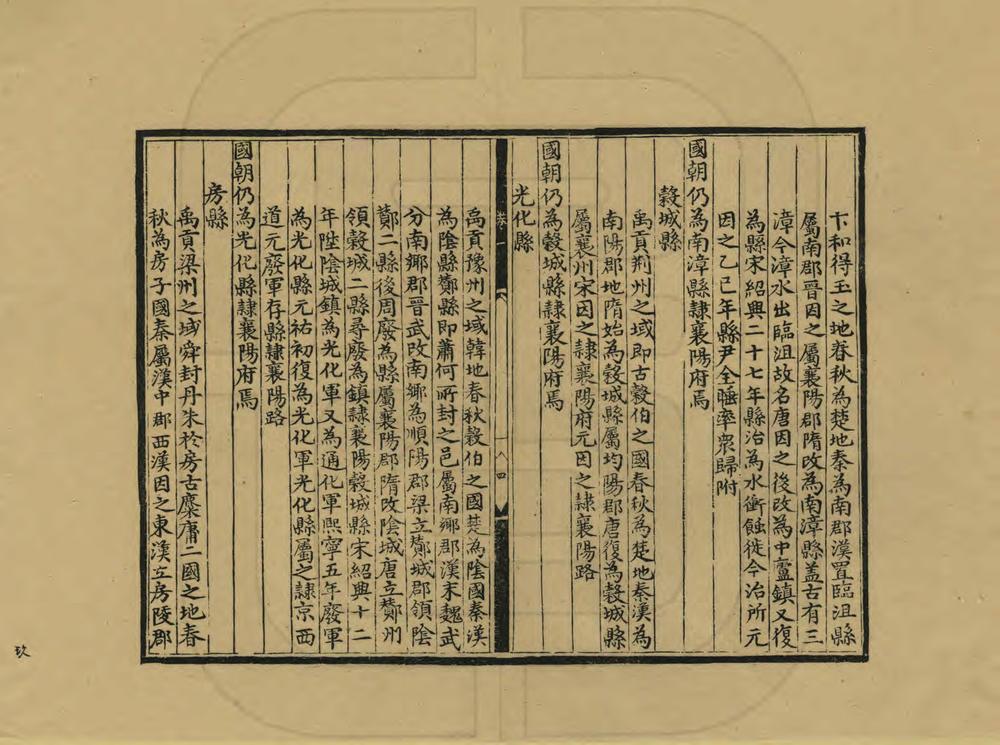 卞和得玉之地春秋為楚地秦為南郡漢置臨沮縣
屬南郡晉因之屬襄陽郡隋改為南漳縣盖古有三
漳今漳水出臨沮故名唐因之後改為中廬鎮又復
為縣宋紹興二十七年縣治為水衝蝕徙今治所元
因之乙巳年縣尹全 率眾歸附
國朝仍為南漳縣隷襄陽府焉
穀城縣
禹貢荆州之域即古穀伯之國春秋為楚地秦漢為
南陽郡地隋始為穀城縣屬均陽郡唐復為穀城縣
屬襄州宋因之隷襄陽府元因之隷襄陽路
國朝仍為穀城縣隷襄陽府焉
光化縣
卷一
八四
禹貢豫州之域韓地春秋穀伯之國楚為陰國秦漢
為陰縣酇縣即蕭何所封之邑屬南鄉郡漢末魏武
分南鄉郡晉武改南鄉為順陽郡梁立酇城郡領陰
酇二縣後周廢為縣屬襄陽郡隋改陰城唐立酇州
領穀城二縣尋廢為鎮隷襄陽穀城縣宋紹興十二
年陞陰城鎮為光化軍又為通化軍熙寧五年廢軍
為光化縣元祐初復為光化軍光化縣屬之隷京西
道元廢軍存縣隷襄陽路
國朝仍為光化縣隷襄陽府焉
房縣
禹貢梁州之域舜封丹朱於房古麇庸二國之地春
秋為房子國秦屬漢中郡西漢因之東漢立房陵郡
玖